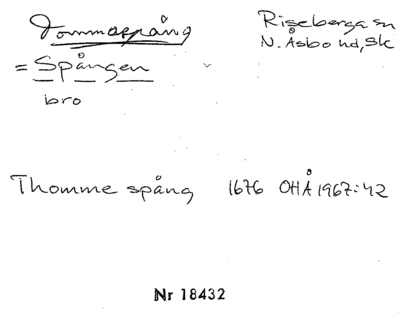 Tommaspång
= Spången
bro
Riseberga sn
N. Åsbo hd, Sk
Thomme spång 1676 OHÅ 1967:42
Nr 18432